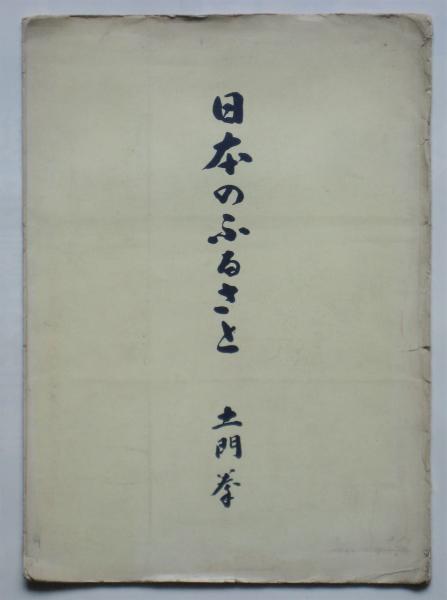 日本のふるさと
土門拳